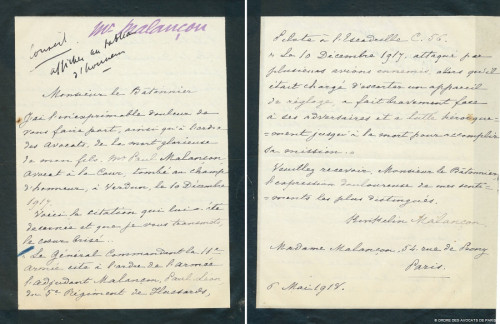 Mr Malançon
Conseil
afficher au tableau
d'honneur
Monsieur le Bâtonnier
J'ai l'inexprimable douleur de
vous faire part, ainsi qu'à l'ordre
des Avocats, de la mort glorieuse
de mon fils, Mr Paul Malançon
Avocat à la Cour, tombé au champ
d'honneur, à Verdun, le 10 Décembre
1917.
Voici la citation qui lui a été
décernée et que je vous transmets,
le cœur brisé...
"Le Général Commandant la IIe
Armée cite à l'ordre de l'armée
l'adjudant Malançon, Paul Léon
du 5e Régiment de Hussards,
Pilote à l'Escadrille C. 56.
"Le 10 Décembre 1917, attaqué par
plusieurs avions ennemis, alors qu'il
était chargé d'escorter un appareil
de réglage, a fait bravement face
à ses adversaires et a lutté héroïque-
-ment jusqu'à la mort pour accomplir
sa mission.."
Veuillez recevoir, Monsieur le Bâtonnier
l'expression douloureuse de mes senti-
-ments les plus distingués.
Malançon
Madame Malançon, 54 rue de
Paris.
6 Mai 1918.
© ORDRE DES AVOCATS DE PARIS